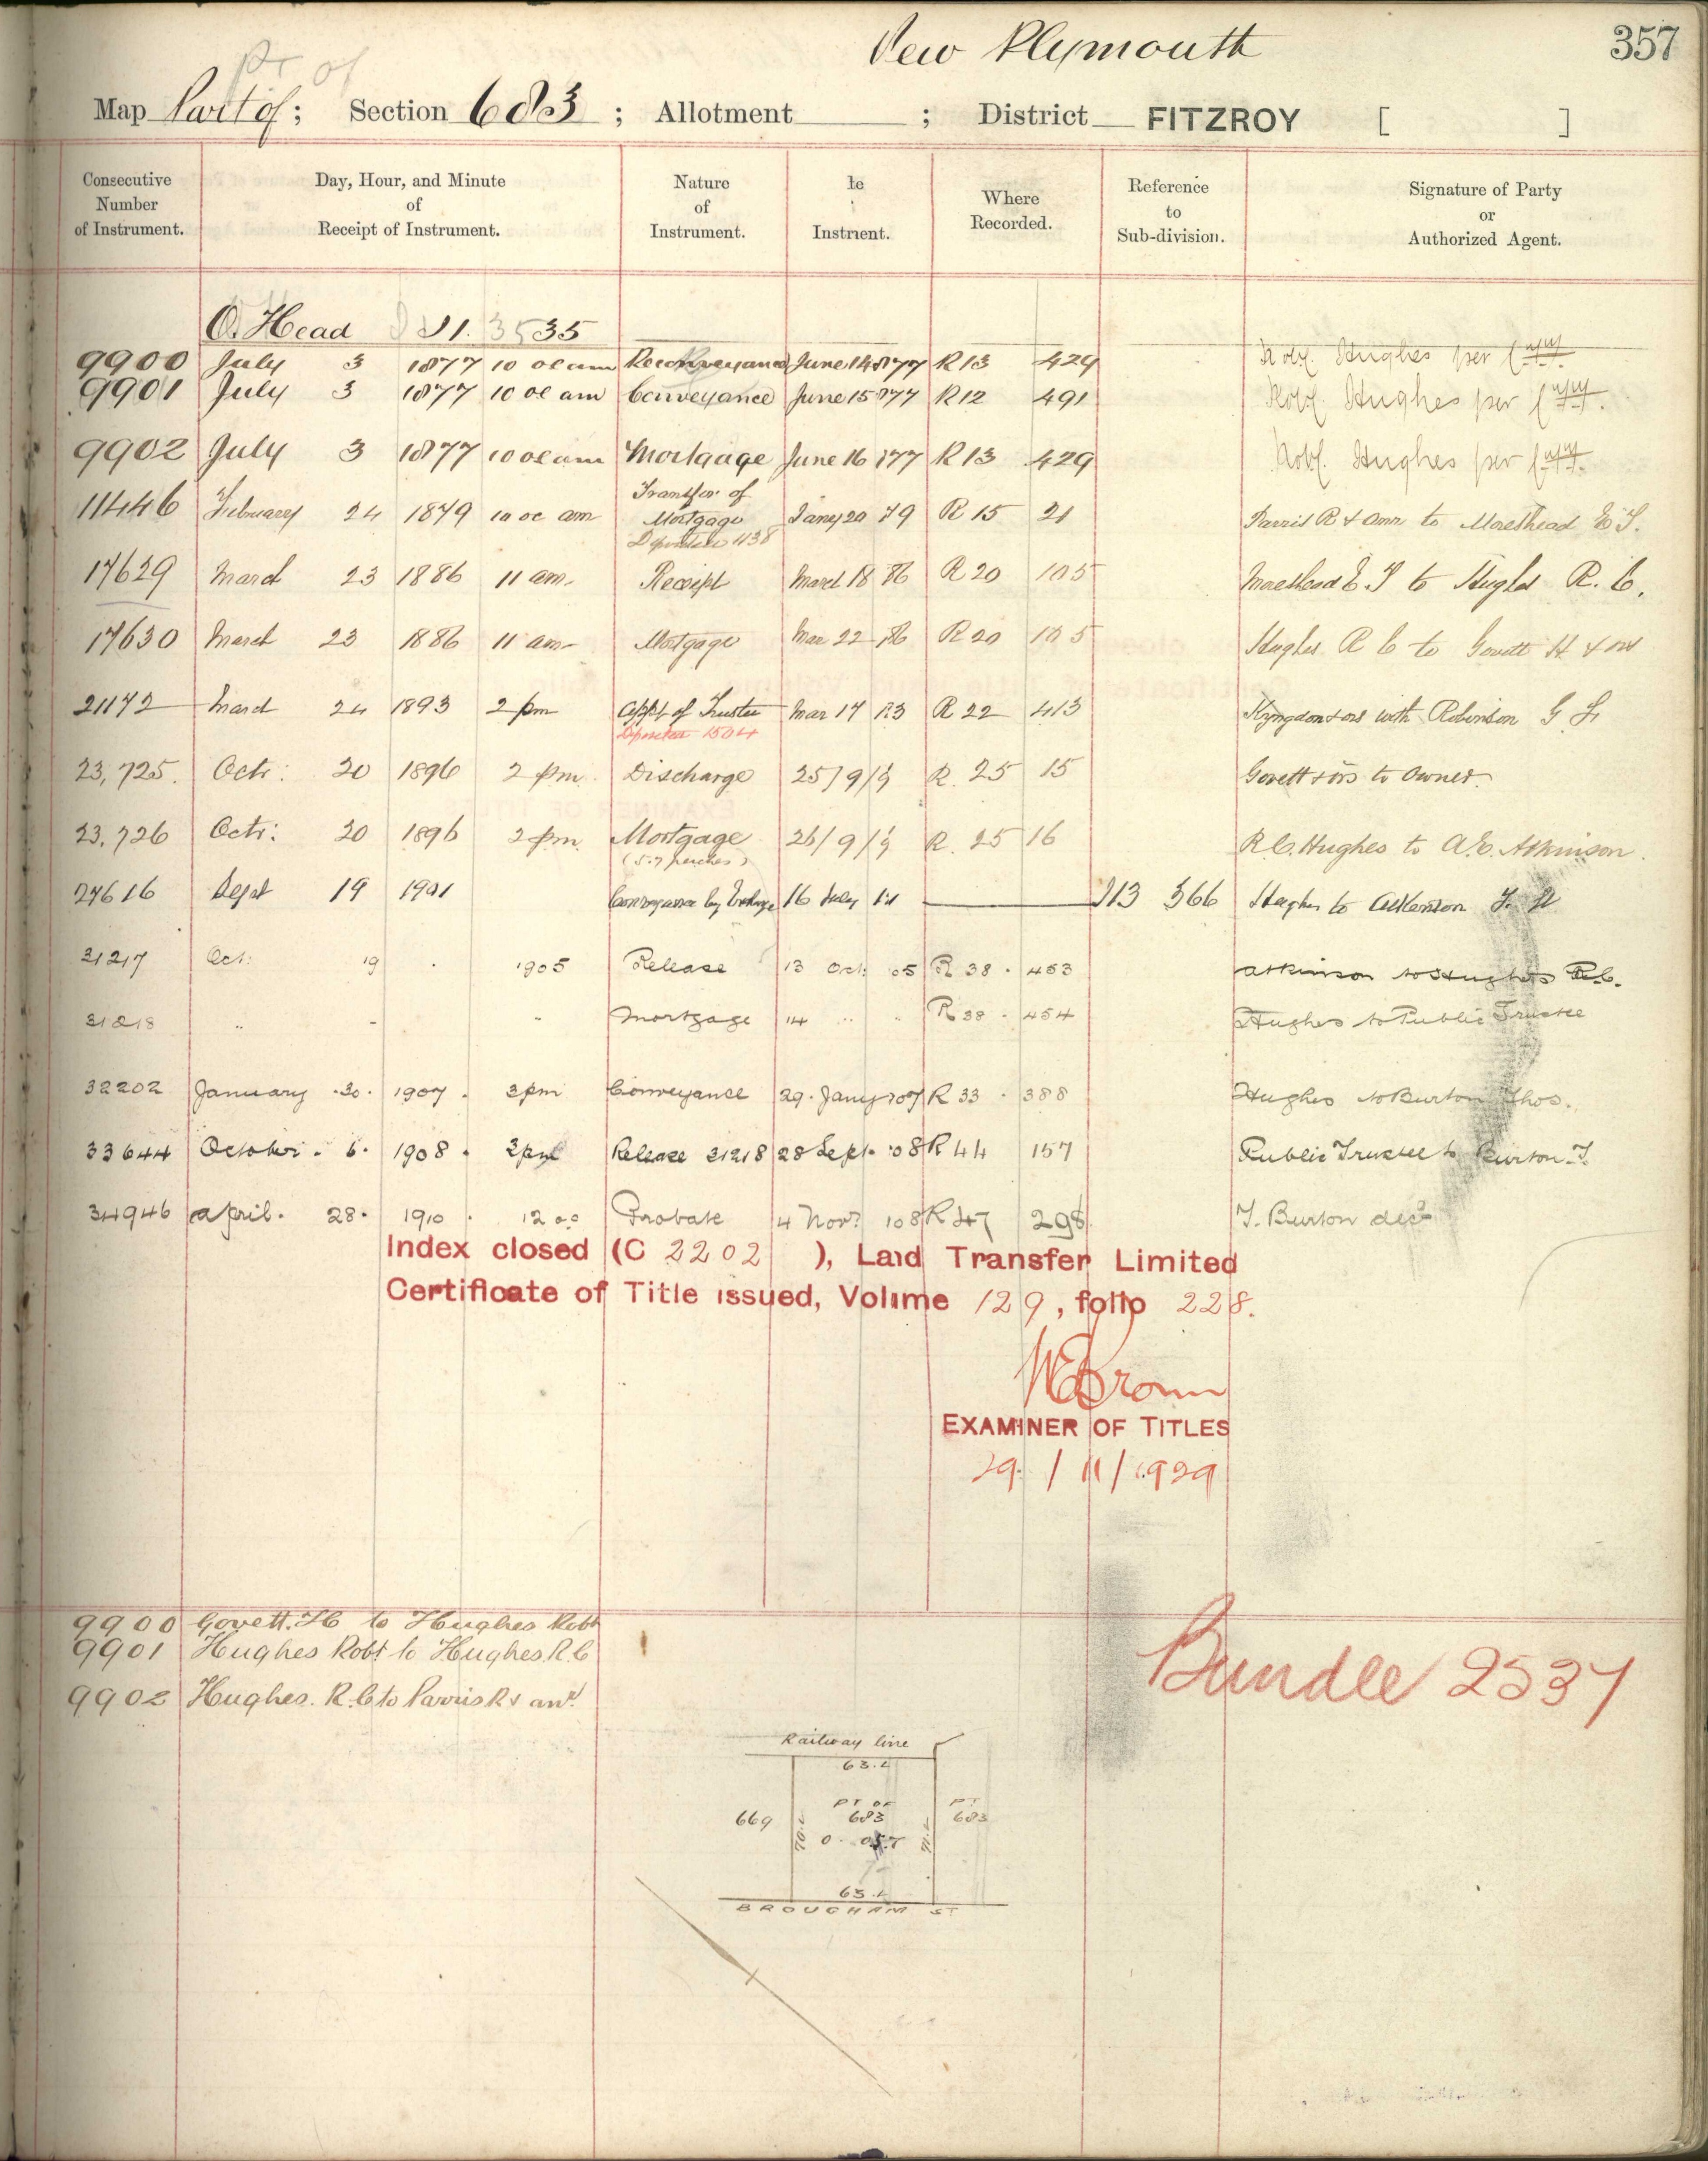 New Plymouth
357
Pt of
Map Part of; Section 683; Allotment ; District FITZROY [ ]
Consecutive Number of Instrument. Day, Hour, and Minute of Receipt of Instrument. Nature of Instrument. te Instrient. Where Recorded. Reference to Sub-division. Signature of Party or Authorized Agent.
O. Head 35
9900 July 3 1877 10 oc am Reconveyance June 14 1877 R 13 429 Robt. Hughes per
9901 July 3 1877 10 oc am Conveyance June 15 1877 R 12 491 Robt. Hughes per
9902 July 3 1877 10 oc am Mortgage June 16 1877 R 13 429 Robt. Hughes per
11446 February 24 1879 10 oc am Transfer of Mortgage Jany 20 79 R 15 21 Parris R & anr to Moreshead E J.
Deposited 1138
17629 March 23 1886 11 am. Receipt March 18 86 R 20 105 Moreshead E J to Hughes R. C.
17630 March 23 1886 11 am Mortgage Mar 22 86 R 20 105 Hughes R C to Govett H & ors
21172 March 24 1893 2 pm Appt of Trustee Mar 17 R 22 413 Kyngdon & ors with Robinson G
Deposited 1504
23,725. Octr: 20 1896 2 pm. Discharge 25/9/ R. 25 15 Govett & ors to Owner.
23,726 Octr: 20 1896 2 pm. Mortgage 26/9/ R. 25 16 R.C. Hughes to A.E. Atkinson.
(5.7 perches)
27616 Sept 19 1901 Conveyance by 16 July 113 566 Hughes to Atkinson
31217 Oct: 19 1905 Release 13 Oct 05 R 38 453 Atkinson to Hughes R.C.
31218 " " " Mortgage 14 " " R 38 454 Hughes to Public Trustee
32202 January 30. 1907. 3pm Conveyance 29. Jany 1907 R 33 388 Hughes to Burton Thos.
33644 October. 6. 1908. Release 31218 28 Sept. 08 R 44 157 Public Trustee to Burton. T.
34946 April. 28. 1910 12 oo Probate 4 Novr 108 R 47 298 T. Burton decd
Index closed (C 2202 ), Land Transfer Limited
Certificate of Title issued, Volume 129, folio 228.
EXAMINER OF TITLES
29. / 11 / 1929
9900 Govett. H to Hughes Robt
9901 Hughes Robt to Hughes. R. C
9902 Hughes. R. C to Parris R & anr.
Bundle 2537
Railway line
63.4
669 PT OF 683 PT 683
0. 0
63.4
BROUGHAM ST